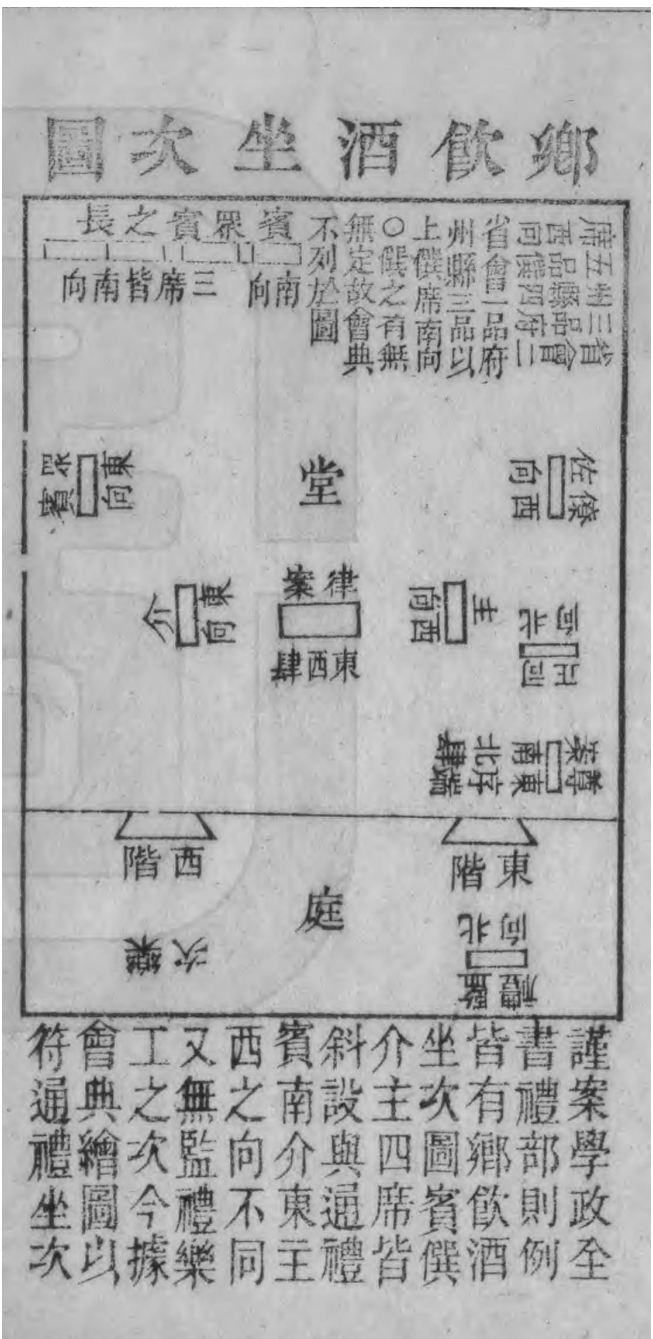 鄉飲酒坐次圖
省會二
三品府
州縣四
五品僎
席西向
省會一品府
州縣三品以
上僎席南向
○僎之有無
無定故會典
不列於圖
賓
南向
眾賓之長
三席皆南向
僚佐
西向
堂
眾賓
東向
主
西向
律案
東西肆
介
東向
司正
北向
尊案
東序端
南北肆
東階
西階
庭
監禮
北向
樂次
謹案學政全
書禮部則例
皆有鄉飲酒
坐次圖賓僎
介主四席皆
斜設與通禮
賓南介東主
西之向不同
又無監禮樂
工之次今據
會典繪圖以
符通禮坐次